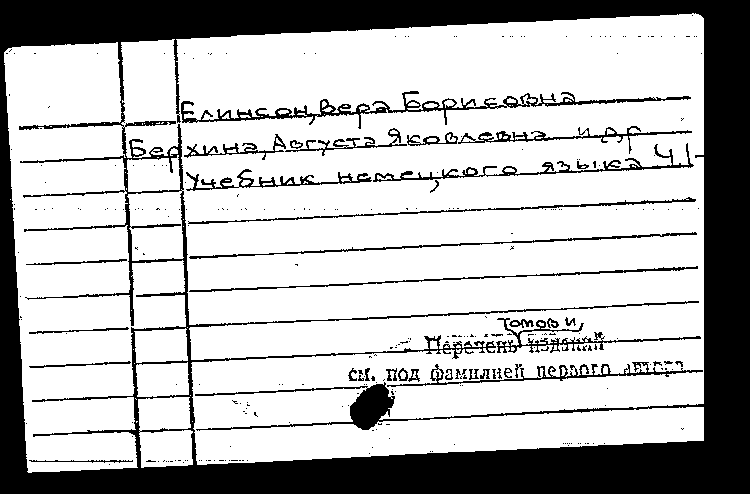 Елинсон, Вера Борисовна
Берхина, Августа Яковлевна и др
Учебник немецкого языка Ч I-
томов и,
Перечень изданий
см. под фамилией первого автора